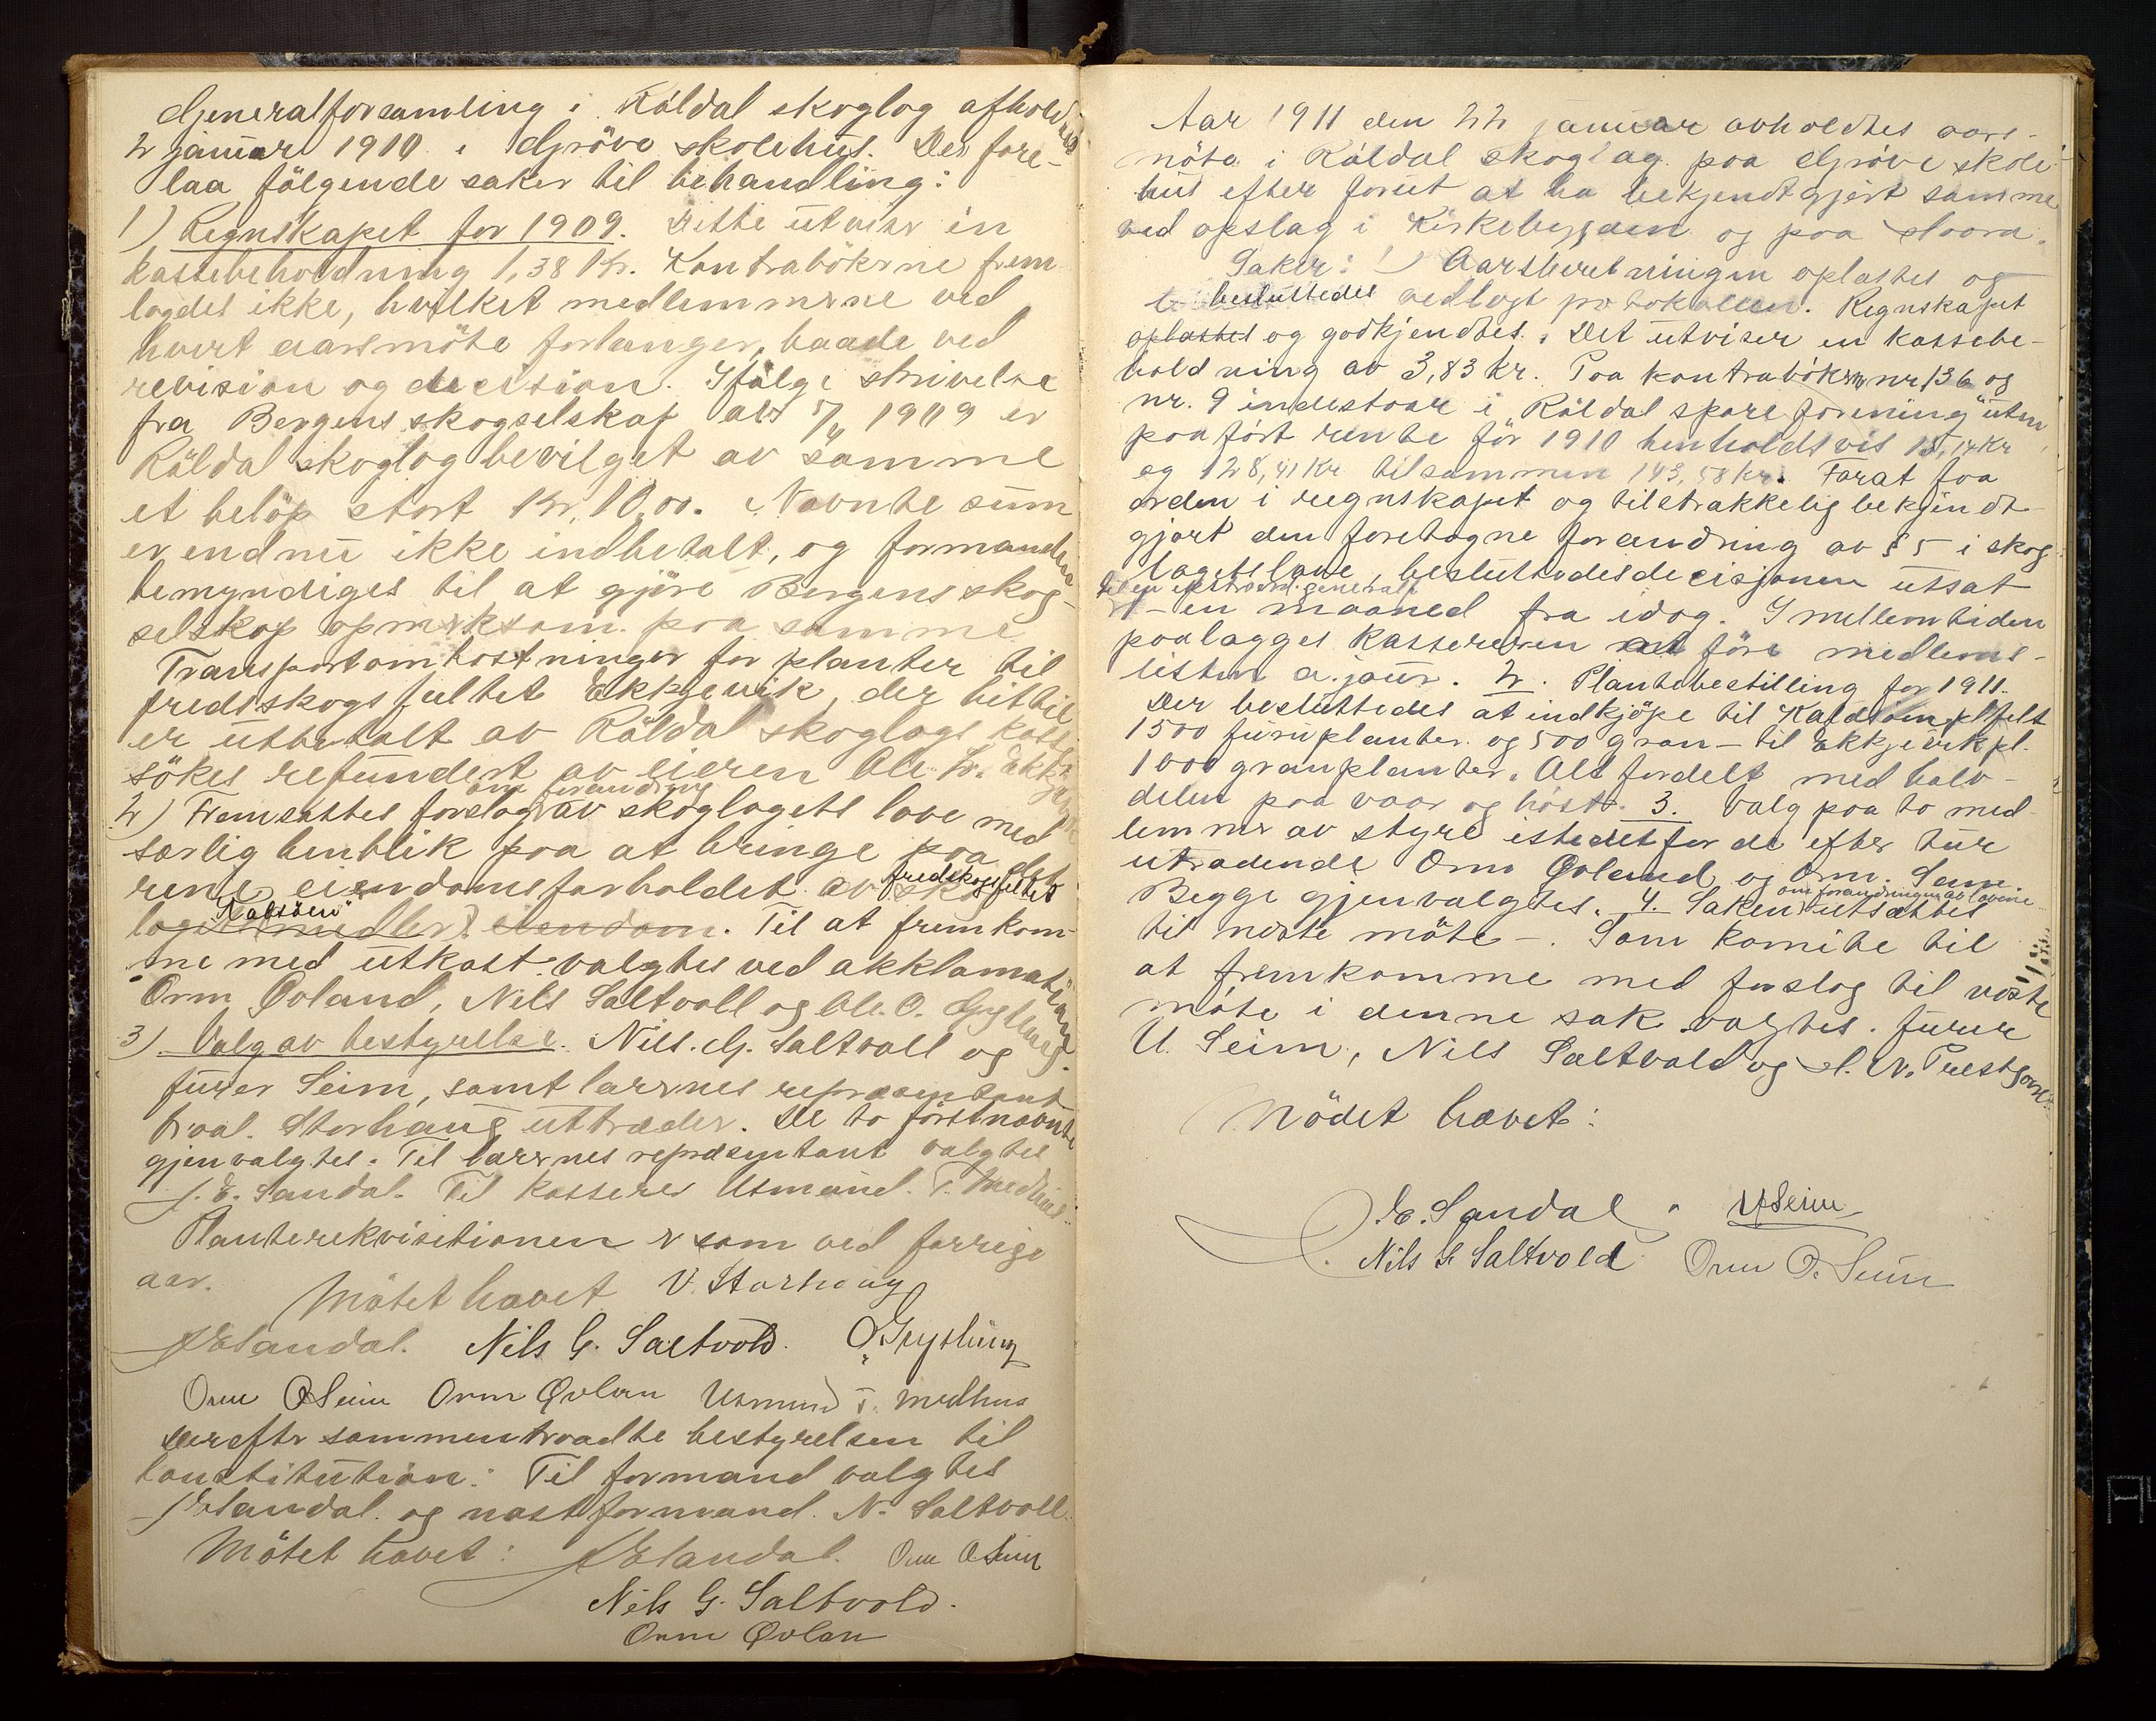 Generalforsamling i Röldal skoglag afholdtes
2 januar 1910 i Gröve skolehus. Der fore-
laa fölgende saker til behandling:
1) Regnskapet for 1909. Dette utviser en
kassebeholdning 1,38 Kr. Kontrabökerne frem
lagdes ikke, hvilket medlemmerne ved
hvert aarsmöte forlanger, baade ved
revision og decision. Ifölge skrivelse
fra Bergens skogselskap av 5/4 1909 er
Röldal skoglag bevilget av samme
et belöp stort Kr. 10,00. Navnte sum
er endnu ikke indbetalt, og formanden
bemyndiges til at gjöre Bergens skog-
selskap opmerksom paa samme
Transportomkostninger for planter til
fredskogsfeltet Ekkjevik, der hittil
er utbetalt av Röldal skoglags kasse
sökes refundert av eieren Ole H. Ekkje
om forandring
2) Fremsattes forslag av skoglagets love med
særlig henblik paa at bringe paa det
rene eiendomsforholdet av fredskogsfeltet
"Kaldsöen"
lagets medlers eiendom. Til at fremkom-
me med utkast valgtes ved akklamation
Orm Øvland, Nils Saltvoll og Ole O. Grytling.
3) Valg av bestyrelse. Nils. G. Saltvoll og
furer Seim, samt lærernes repræsentant
Storhaug uttræder. De to förstnævnte
gjenvalgtes. Til lærernes repræsentant valgtes
J. E. Sandal. Til kasserer Usmund. T. Medhus
Planterekvisitionen er som ved forrige
aar.
Mötet hævet V. Storhaug
J E Sandal. Nils G. Saltvold. O Grytling
Orm O Seim Orm Øvlan Usmund T. Medhus
Derefter sammentraadte bestyrelsen til
konstitution: Til formand valgtes
J E Sandal. og næstformand. N. Saltvoll.
Mötet hævet: J E Sandal. Orm O Seim
Nils G. Saltvold.
Orm Øvlan
Aar 1911 den 22 januar avholdtes aars-
möte i Röldal skoglag paa Gröve skole-
hus efter forut at ha bekjendtgjört samme
ved opslag i Kirkebygden og paa Haara.
Saker: 1) Aarsberetningen oplæstes og
besluttedes vedlagt protokollen. Regnskapet
oplæstes og godkjendtes. Det utviser en kassebe-
holdning av 3,83 kr. Paa kontrabökerne nr 136 og
nr. 9 indestaar i "Röldal spareforening" uten
paafört rente för 1910 henholdsvis 15,17 Kr
og 128,41 Kr tilsammen 143,58 kr. Forat faa
orden i regnskapet og tilstrækkelig bekjendt-
gjort den foretagne forandring av § 5 i skog
lagets love, besluttedes decisjonen utsat
til en ekstraord. generalf.
- en maaned fra idag. I mellemtiden
paalægges kassereren at före medlems-
listen a jour. 2. Plantebestilling for 1911.
Der besluttedes at indkjöpe til Kaldsöen plfelt
1500 furuplanter og 500 gran - til Ekkjevik pl.
1000 granplanter. Alt fordelt med halv-
delen paa vaar og höst. 3. Valg paa to med-
lemmer av styre istedetfor de efter tur
utrædende Orm Øvland og Orm. Seim.
om forandringen av lovene
Begge gjenvalgtes. 4. Saken utsættes
til næste möte -. Som komite til
at fremkomme med forslag til næste
möte i denne sak valgtes. furer
U. Seim, Nils Saltvold og N. Prestgard.
Mödet hævet:
J. E. Sandal. U Seim
Nils G Saltvold Orm O. Seim